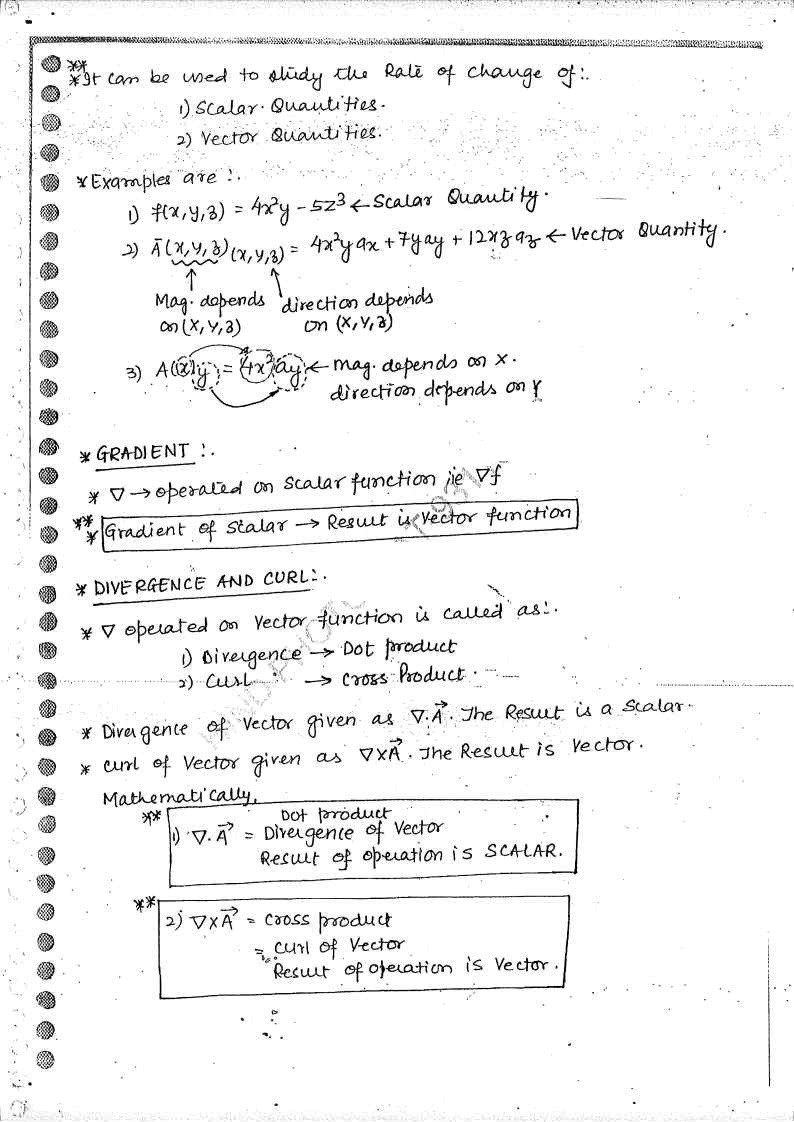 **
* It can be used to study the Rate of change of:.
1) Scalar. Quantities.
2) Vector Quantities.
* Examples are :.
1) f(x,y,z) = 4x²y - 5z³ ← Scalar Quantity.
2) Ā(x,y,z)(x,y,z) = 4x²y ax + 7y ay + 12xz az ← Vector Quantity.
Mag. depends direction depends
on (x,y,z) on (x,y,z)
3) A(x)y = 4x² ay ← mag. depends on x.
direction depends on Y
* GRADIENT :.
* ∇ → operated on scalar function ie ∇f
**
* Gradient of Scalar → Result is Vector function
* DIVERGENCE AND CURL:.
* ∇ operated on Vector function is called as:.
1) Divergence → Dot product
2) Curl → Cross Product.
* Divergence of Vector given as ∇.A⃗. The Result is a Scalar.
* Curl of Vector given as ∇×A⃗. The Result is Vector.
Mathematically,
** Dot product
1) ∇.A⃗ = Divergence of Vector
Result of operation is SCALAR.
**
2) ∇×A⃗ = Cross product
= Curl of Vector
Result of operation is Vector.